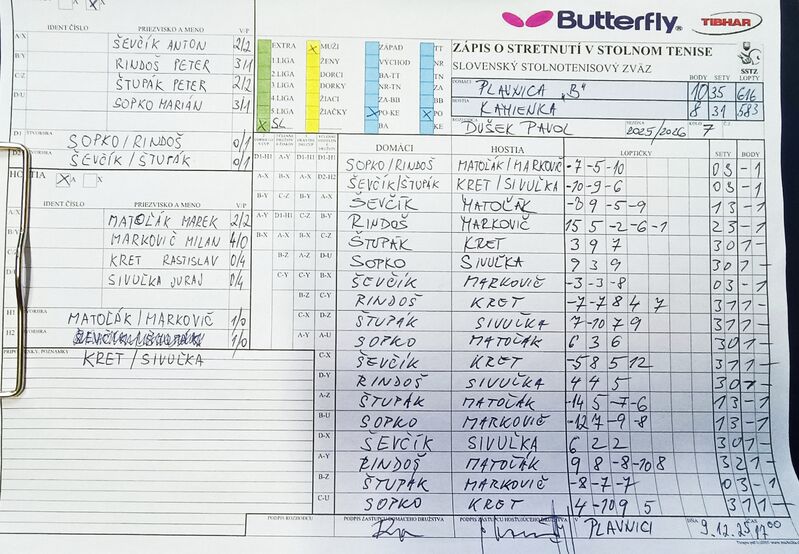 Butterfly
TIBHAR
ZÁPIS O STRETNUTÍ V STOLNOM TENISE
SLOVENSKÝ STOLNOTENISOVÝ ZVÄZ
SSTZ
BODY SETY LOPTY
DOMÁCI PLAVNICA "B" 10 35 616
HOSTIA KAMIENKA 8 31 583
DUŠEK PAVOL 2025/2026 7
IDENT ČÍSLO PRIEZVISKO A MENO V/P
A-X ŠEVČÍK ANTON 2/2
RINDOŠ PETER 3/1
ŠTUPÁK PETER 2/2
SOPKO MARIÁN 3/1
SOPKO/RINDOŠ 0/1
ŠEVČÍK/ŠTUPÁK 0/1
HOSTIA X A X
IDENT ČÍSLO PRIEZVISKO A MENO V/P
MATOĽÁK MAREK 2/2
MARKOVIČ MILAN 4/0
KRET RASTISLAV 0/4
SIVUĽKA JURAJ 0/4
H1 MATOĽÁK/MARKOVIČ 1/0
H2 1/0
PRIPOMIENKY, POZNÁMKY
KRET/SIVUĽKA
EXTRA X MUŽI ZÁPAD TT
1 LIGA ŽENY VÝCHOD NR
2 LIGA DORCI BA-TT TN
3 LIGA DORKY NR-TN ZA
4 LIGA ŽIACI ZA-BB BB
5 LIGA ŽIAČKY X PO-KE X PO
X SL BA KE
DOMÁCI HOSTIA LOPTIČKY SETY BODY
SOPKO/RINDOŠ MATOĽÁK/MARKOVIČ -7 -5 -10 0 3 - 1
ŠEVČÍK/ŠTUPÁK KRET/SIVUĽKA -10 -9 -6 0 3 - 1
ŠEVČÍK MATOĽÁK 9 -5 -9 1 3 - 1
RINDOŠ MARKOVIČ 15 5 -2 -6 -1 2 3 - 1
ŠTUPÁK KRET 3 9 7 3 0 1 -
SOPKO SIVUĽKA 9 3 9 3 0 1 -
ŠEVČÍK MARKOVIČ -3 -3 -8 0 3 - 1
RINDOŠ KRET -7 -7 8 4 7 3 1 1 -
ŠTUPÁK SIVUĽKA 7 -10 7 9 3 1 1 -
SOPKO MATOĽÁK 6 3 6 3 0 1 -
C-X ŠEVČÍK KRET -5 8 5 12 3 1 1 -
D-Y RINDOŠ SIVUĽKA 4 4 5 3 0 1 -
A-Z ŠTUPÁK MATOĽÁK -14 5 -7 -6 1 3 - 1
B-U SOPKO MARKOVIČ -12 7 -9 -8 1 3 - 1
D-X ŠEVČÍK SIVUĽKA 6 2 2 3 0 1 -
A-Y RINDOŠ MATOĽÁK 9 8 -8 -10 8 3 2 1 -
B-Z ŠTUPÁK MARKOVIČ -8 -7 -7 0 3 - 1
C-U SOPKO KRET 4 -10 9 5 3 1 1 -
PODPIS ROZHODCU PODPIS ZÁSTUPCU DOMÁCEHO DRUŽSTVA PODPIS ZÁSTUPCU HOSŤUJÚCEHO DRUŽSTVA V PLAVNICI DŇA 9.12.25 ČAS 17:00